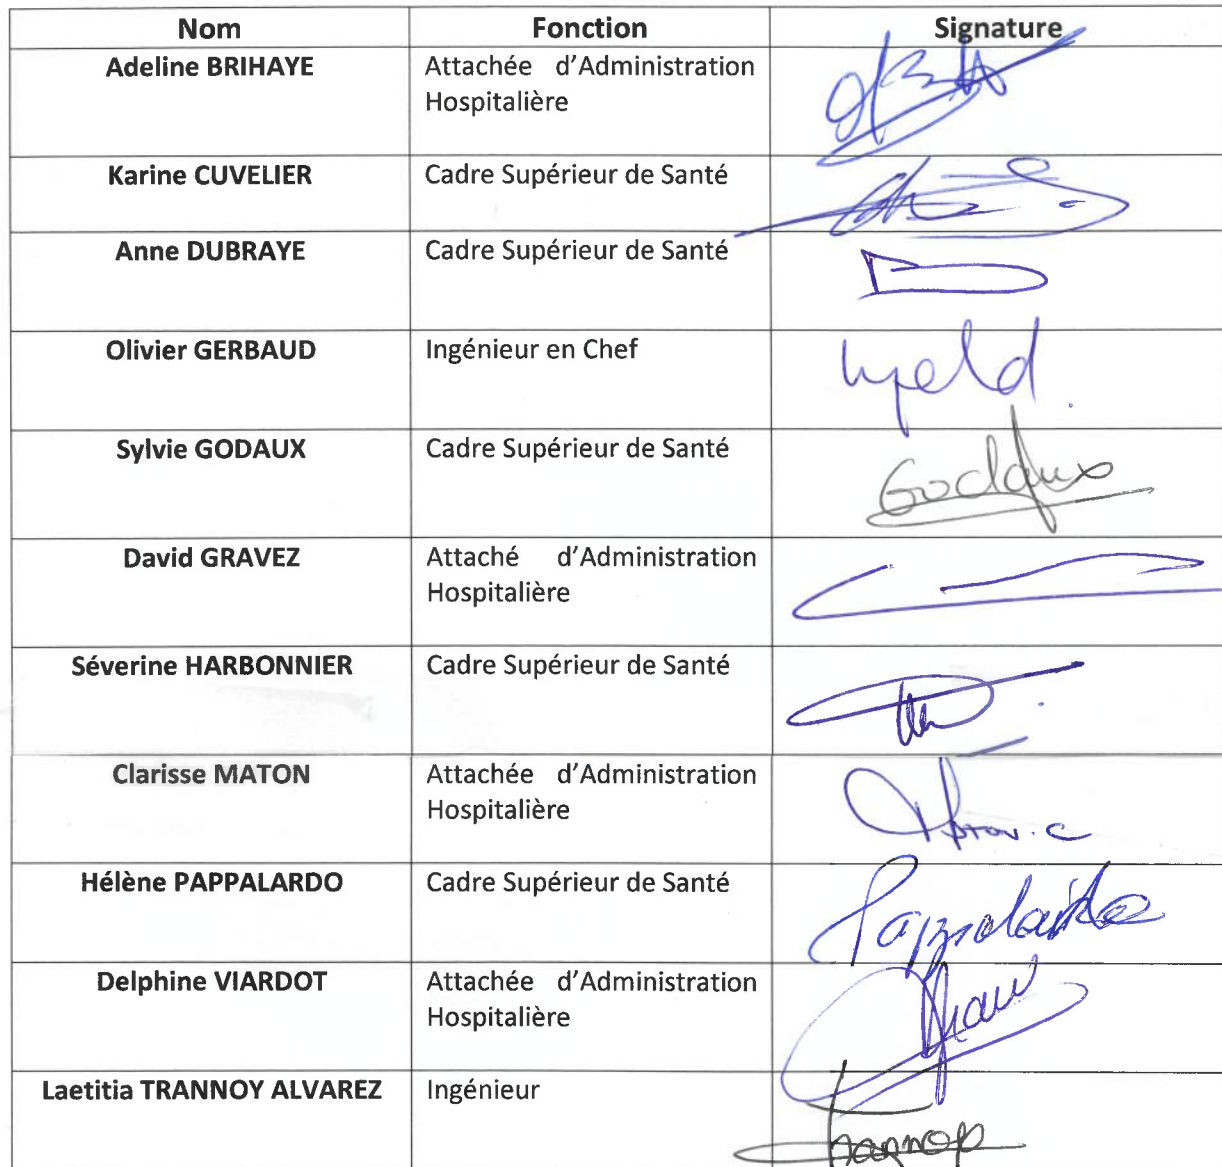 Nom Fonction Signature
Adeline BRIHAYE Attachée d'Administration
Hospitalière
Karine CUVELIER Cadre Supérieur de Santé
Anne DUBRAYE Cadre Supérieur de Santé
Olivier GERBAUD Ingénieur en Chef
Sylvie GODAUX Cadre Supérieur de Santé
Godaux
David GRAVEZ Attaché d'Administration
Hospitalière
Séverine HARBONNIER Cadre Supérieur de Santé
Clarisse MATON Attachée d'Administration
Hospitalière
Hélène PAPPALARDO Cadre Supérieur de Santé
Delphine VIARDOT Attachée d'Administration
Hospitalière
Laetitia TRANNOY ALVAREZ Ingénieur